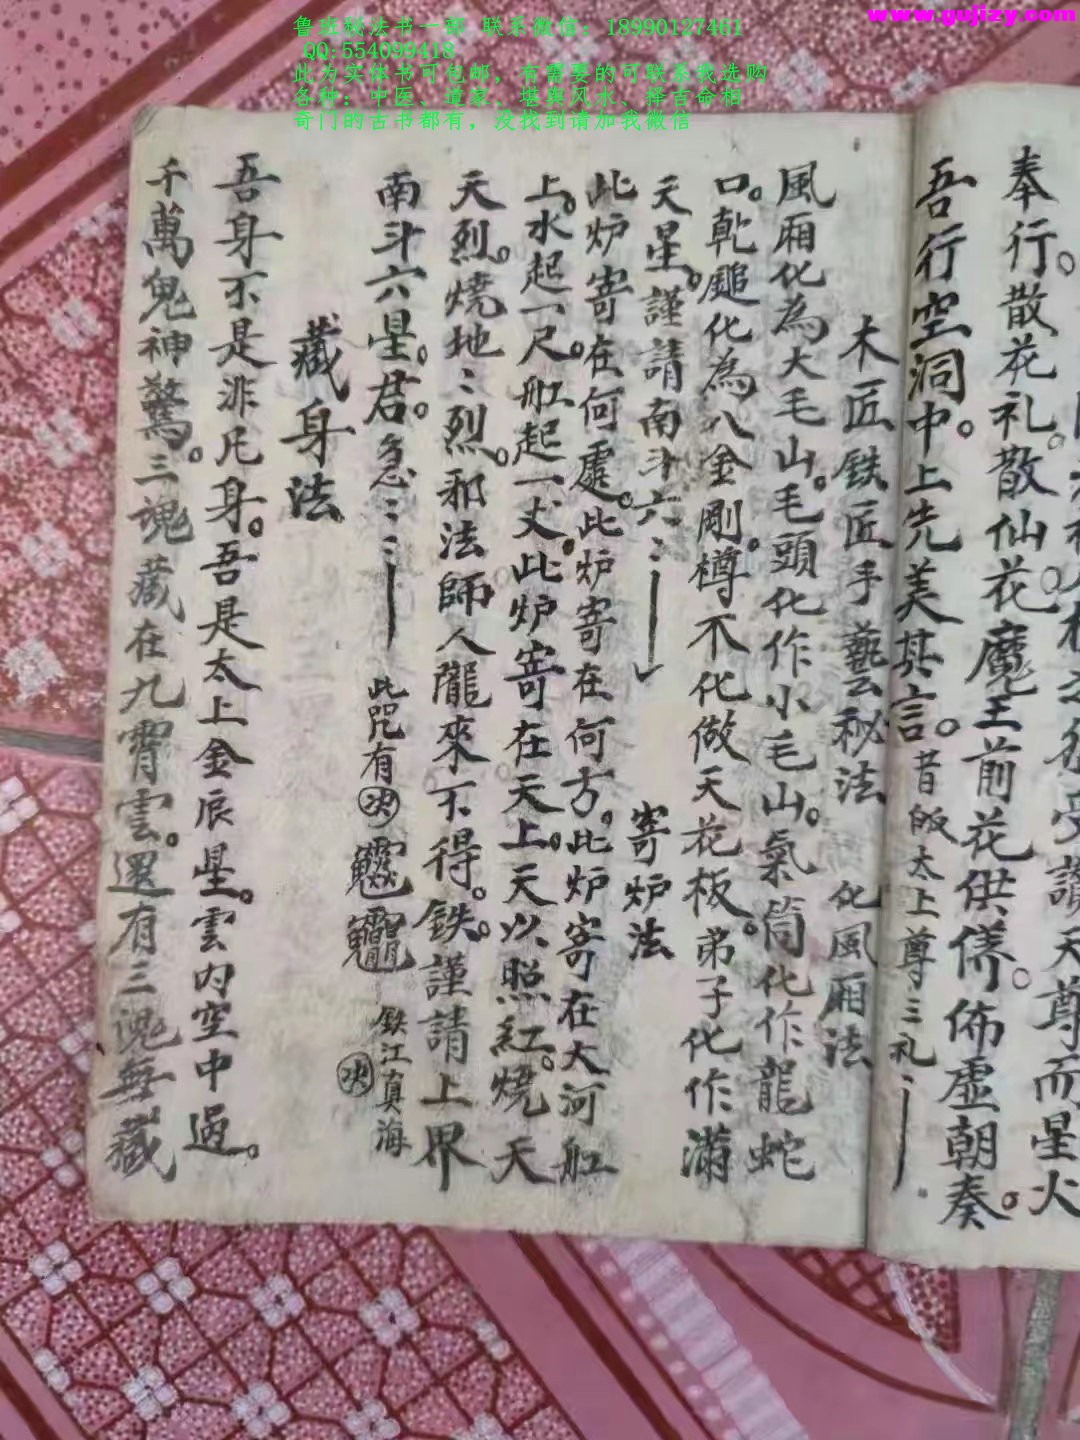 鲁班秘法书一部 联系微信：18990127461
QQ:554099418
此为实体书可包邮，有需要的可联系我选购
各种：中医、道家、堪舆风水、择吉命相
奇门的古书都有，没找到请加我微信
www.gujizy.com
天尊而星火
奉行。散花礼。散仙花魔王前花供俻。佈虚朝奏。
吾行空洞中。上先美其言。昔皈太上尊三礼
木匠铁匠手藝秘法 化風厢法
風厢化為大毛山。毛頭化作小毛山。氣筒化作龍蛇
口。乾鎚化為八金剛。樽不化做天花板。弟子化作滿
天星。謹請南斗六：寄炉法
此炉寄在何處。此炉寄在何方。此炉寄在大河舡
上。水起一尺。舡起一丈。此炉寄在天上。天以照紅。燒天
天烈。燒地：烈。邪法師人隴來不得。鉄。謹請上界
南斗六星。君。急：：此咒有 鉄江真海
藏身法
吾身不是非凡身。吾是太上金辰星。雲内空中過。
千萬鬼神驚。三魂藏在九霄雲。還有三魂無藏